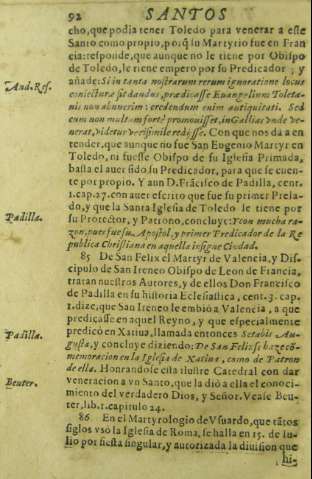 92 SANTOS
cho, que podia tener Toledo para venerar a este
Santo como propio, porq̃ su Martyrio fue en Fran
cia: responde, que aunque no le tiene por Obispo
de Toledo, le tiene empero por su Predicador, y
And. Res.
añade: Si in tanta nostrarum rerum ignoratione locus
coniecturæ sit dandus, prædicasse Euangelium Toleta-
nis non abnuerim: credendum enim antiquitati. Sed
cum non multum fortè promouisset, in Gallias vnde ve-
nerat, videtur verisimile redijsse. Con que nos da a en
tender, que aunque no fue San Eugenio Martyr en
Toledo, ni fuesse Obispo de su Iglesia Primada,
basta el auer sido su Predicador, para que se cuen-
te por propio. Y aun D. Frãcisco de Padilla, cent.
1. cap. 27. con auer escrito que fue su primer Prela-
do, y que la Santa Iglesia de Toledo le tiene por
Padilla.
su Protector, y Patrono, concluye: Y con mucha ra-
zon, pues fue su Apostol, y primer Predicador de la Re
publica Christiana en aquella insigne Ciudad.
85 De San Felix el Martyr de Valencia, y Dis-
cipulo de San Ireneo Obispo de Leon de Francia,
tratan nuestros Autores, y de ellos Don Francisco
de Padilla en su historia Eclesiastica, cent. 3. cap.
1. dize, que San Ireneo le embiò a Valencia, a que
predicasse en aquel Reyno, y que especialmente
predicò en Xatiua, llamada entonces Setabis Au-
Padilla.
gusta, y concluye diziendo: De San Felix se haze cõ-
memoracion en la Iglesia de Xatiua, como de Patron
de ella. Honrandose esta ilustre Catedral con dar
Beuter.
veneracion a vn Santo, que la diò a ella el conoci-
miento del verdadero Dios, y Señor. Vease Beu-
ter, lib. 1. capitulo 24.
86 En el Martyrologio de Vsuardo, que tãtos
siglos vsò la Iglesia de Roma, se halla en 15. de Iu-
lio por fiesta singular, y autorizada la diuision que
hi-